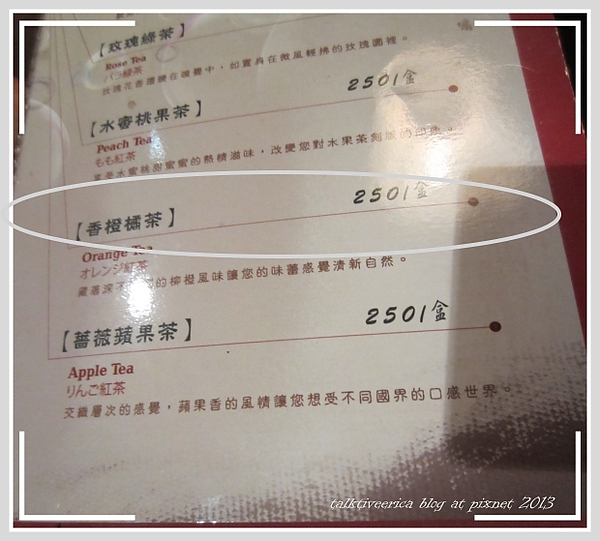 【玫瑰綠茶】
Rose Tea
バラ緑茶
玫瑰花香環繞在嗅覺中，如置身在微風輕拂的玫瑰園裡。
【水蜜桃果茶】 250/盒
Peach Tea
もも紅茶
水蜜桃甜蜜蜜的熱情滋味，改變您對水果茶刻版的印象。
【香橙橘茶】 250/盒
Orange Tea
オレンジ紅茶
的柳橙風味讓您的味蕾感覺清新自然。
【薔薇蘋果茶】 250/盒
Apple Tea
りんご紅茶
交織層次的感覺，蘋果香的風情讓您想受不同國界的口感世界。
talktiveerica blog at pixnet 2013